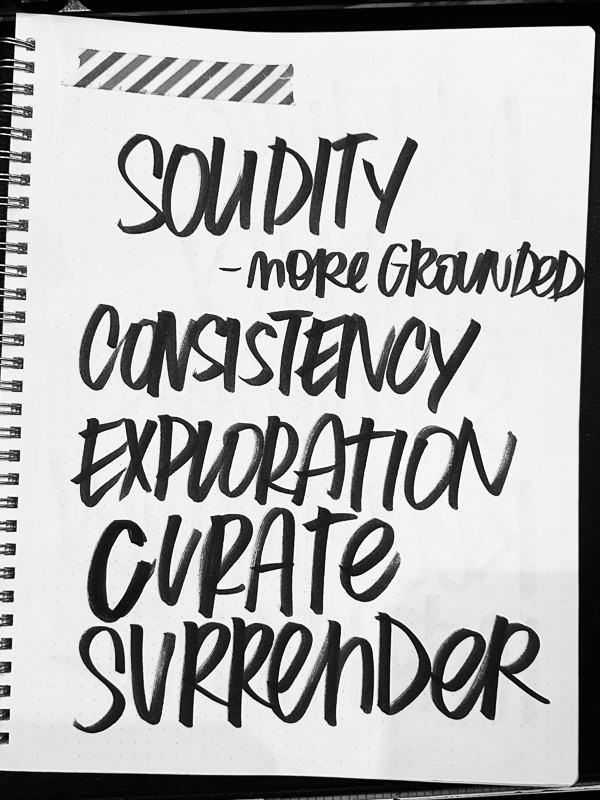 SOLIDITY
- MORE GROUNDED
CONSISTENCY
EXPLORATION
CURATE
SURRENDER